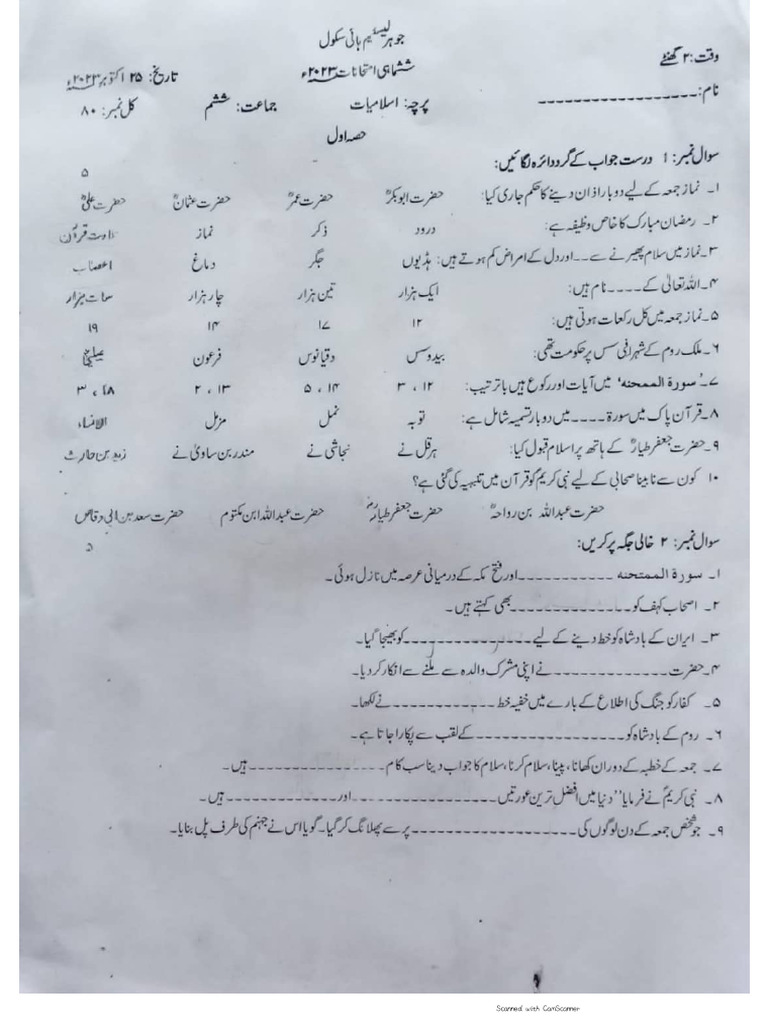 جوہر لیسٹیم ہائی سکول
وقت: ۲ گھنٹے
ششماہی امتحانات ۲۰۲۳ء
تاریخ: ۲۵ اکتوبر ۲۰۲۳ء
نام: ------------------
پرچہ: اسلامیات
جماعت: ششم
کل نمبر: ۸۰
حصہ اول
سوال نمبر: ۱ درست جواب کے گرد دائرہ لگائیں: ۵
۱۔ نماز جمعہ کے لیے دو بار اذان دینے کا حکم جاری کیا: حضرت ابوبکرؓ حضرت عمرؓ حضرت عثمانؓ حضرت علیؓ
۲۔ رمضان مبارک کا خاص وظیفہ ہے: درود ذکر نماز تلاوت قرآن
۳۔ نماز میں سلام پھیرنے سے ۔۔۔ اور دل کے امراض کم ہوتے ہیں: ہڈیوں جگر دماغ اعصاب
۴۔ اللہ تعالیٰ کے ۔۔۔۔ نام ہیں: ایک ہزار تین ہزار چار ہزار سات ہزار
۵۔ نماز جمعہ میں کل رکعات ہوتی ہیں: ۱۲ ۱۷ ۱۴ ۱۹
۶۔ ملک روم کے شہر افی سس پر حکومت تھی: بیدوسس دقیانوس فرعون
۷۔ 'سورۃ الممحنہ' میں آیات اور رکوع ہیں با ترتیب: ۱۲ ، ۳ ۱۴ ، ۵ ۱۳ ، ۲ ۱۸ ، ۳
۸۔ قرآن پاک میں سورۃ ۔۔۔۔ میں دو بار تسمیہ شامل ہے: توبہ نمل مزمل الانبیاء
۹۔ حضرت جعفر طیارؓ کے ہاتھ پر اسلام قبول کیا: ہرقل نے نجاشی نے منذر بن ساویٰ نے زید بن حارث
۱۰ کون سے نابینا صحابی کے لیے نبی کریمؐ کو قرآن میں تنبیہہ کی گئی ہے؟
حضرت عبداللہ بن رواحہؓ حضرت جعفر طیارؓ حضرت عبداللہ ابن مکتوم حضرت سعد بن ابی وقاص
سوال نمبر: ۲ خالی جگہ پر کریں: ۵
۱۔ سورۃ الممتحنہ ------------ اور فتح مکہ کے درمیانی عرصہ میں نازل ہوئی۔
۲۔ اصحاب کہف کو ------------ بھی کہتے ہیں۔
۳۔ ایران کے بادشاہ کو خط دینے کے لیے ------------ کو بھیجا گیا۔
۴۔ حضرت ------------ نے اپنی مشرک والدہ سے ملنے سے انکار کر دیا۔
۵۔ کفار کو جنگ کی اطلاع کے بارے میں خفیہ خط ------------ نے لکھا۔
۶۔ روم کے بادشاہ کو ------------ کے لقب سے پکارا جاتا ہے۔
۷۔ جمعہ کے خطبہ کے دوران کھانا، پینا، سلام کرنا، سلام کا جواب دینا سب کام ------------ ہیں۔
۸۔ نبی کریمؐ نے فرمایا ''دنیا میں افضل ترین عورتیں ------------ اور ------------ ہیں۔
۹۔ جو شخص جمعہ کے دن لوگوں کی ------------ پر سے پھلانگ کر گیا۔ گویا اس نے جہنم کی طرف پل بنایا۔
Scanned with CamScanner